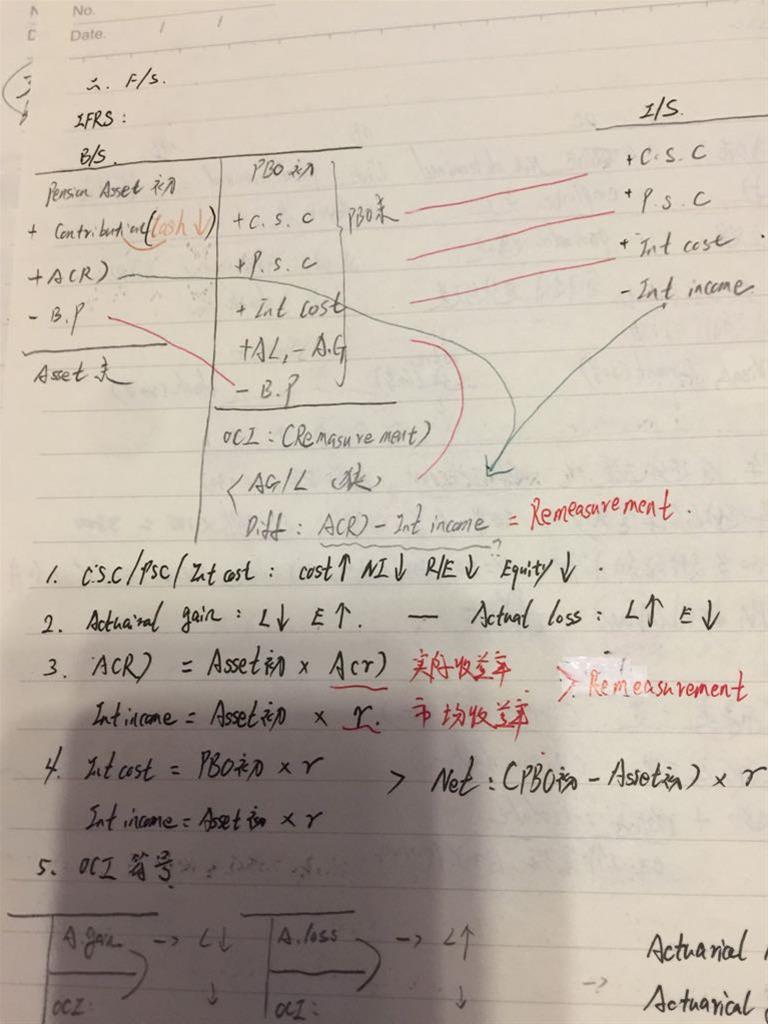 No.
Date.
二. F/S.
IFRS:
B/S.
I/S.
Pension Asset初
+ Contribution (Cash ↓)
+ A(R)
- B.P
Asset末
PBO初
+ C.S.C
+ P.S.C
+ Int cost
+ AL, - A.G
- B.P
PBO末
+ C.S.C
+ P.S.C
+ Int cost
- Int income
OCI: (Remasurement)
AG/L
Diff: A(R) - Int income = Remeasurement.
1. C.S.C/PSC/Int cost: cost↑ NI↓ R/E↓ Equity↓.
2. Actuairal gain: L↓ E↑. — Actual loss: L↑ E↓
3. A(R) = Asset初 × A(r) 实际收益率
Int income = Asset初 × r. 市场收益率
> Remeasurement
4. Int cost = PBO初 × r
Int income = Asset初 × r
> Net: (PBO初 - Asset初) × r
5. OCI 符号
A.gain → L↓
OCI:
↓
A.loss → L↑
OCI:
↓
→
Actuarical
Actuarical